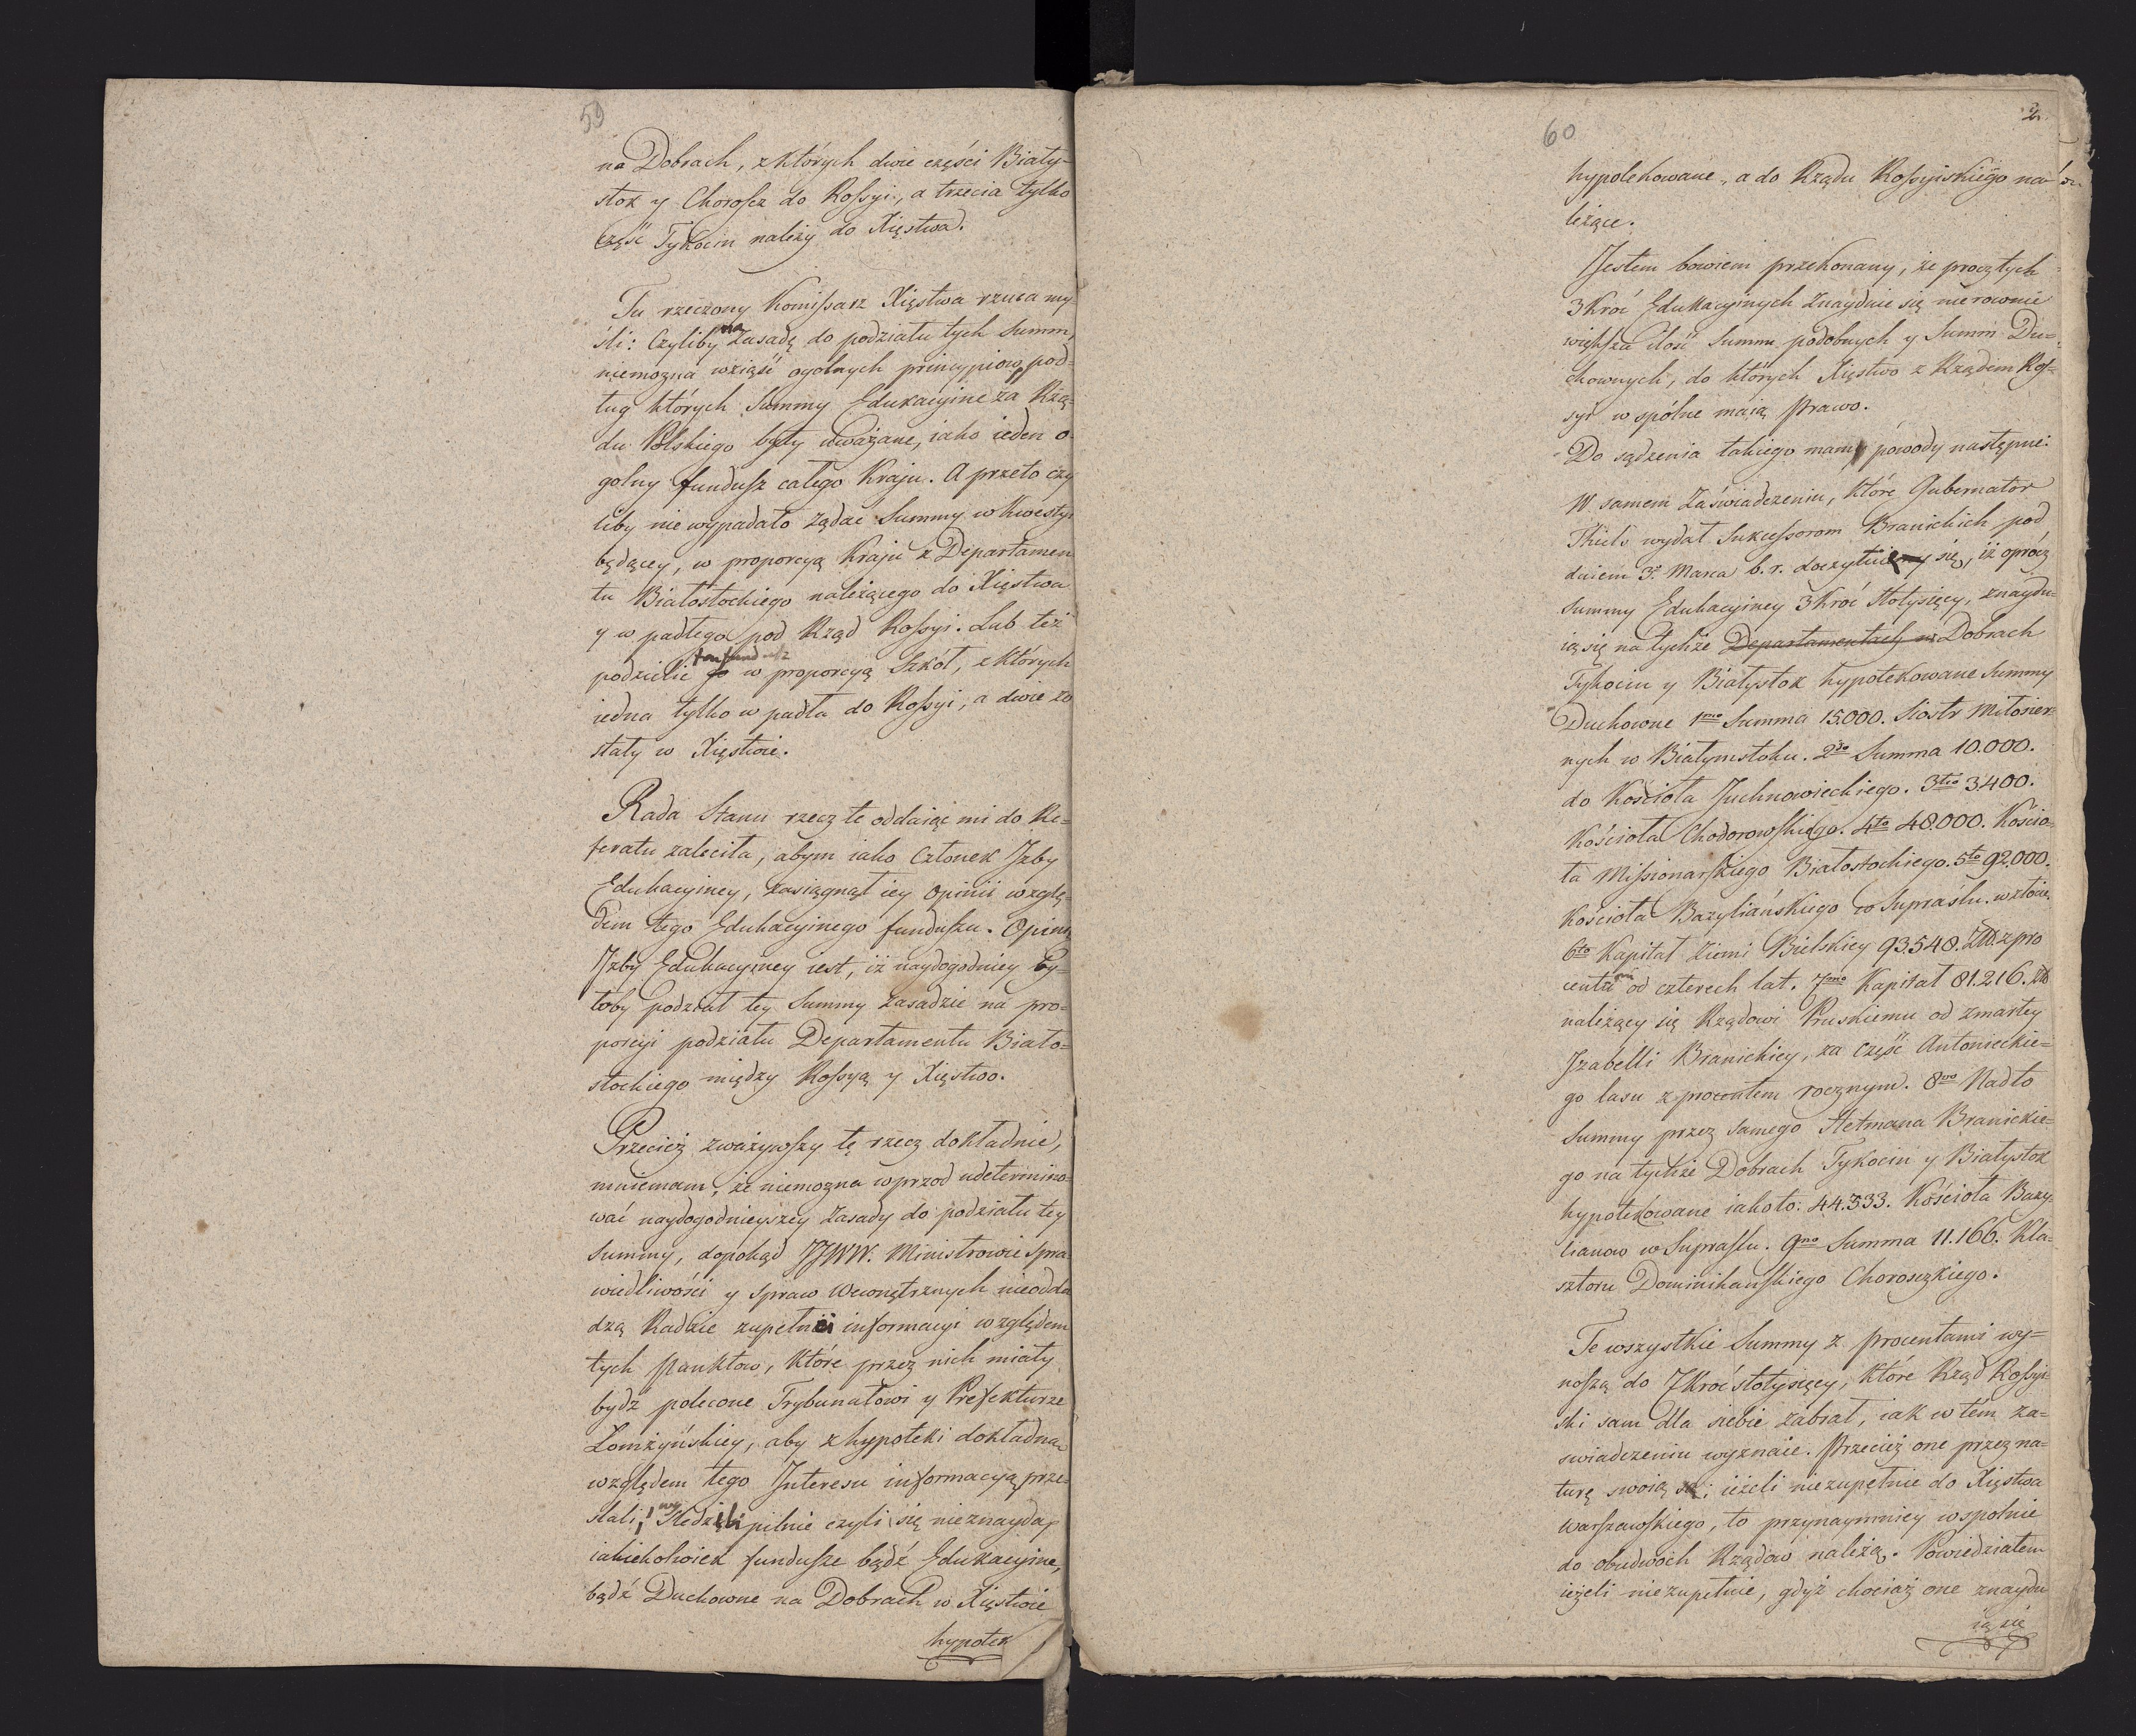 59
na Dobrach, z których dwie części Biały-
stok y Choroszcz do Rossyi, a trzecia tylko
część Tykocin należy do Xięstwa.
Tu rzeczony Komissarz Xięstwa rzuca my-
śli: Czyliby na Zasadę do podziału tych Summ,
niemożna wziąść ogolnych princypiow, pod-
ług których Summy Edukacyine za Rzą-
du Polskiego były uważane, iako ieden o-
golny fundusz całego Kraju. A przeto czy
liby nie wypadało żądać Summy w kwestyi
będącey, w proporcyą Kraju z Departamen
tu Białostockiego należącego do Xięstwa
y w padłego pod Rząd Rossyi. Lub też
podzielić ten fundusz w proporcyą Szkół, z których
iedna tylko w padła do Rossyi, a dwie zo
stały w Xięstwie.
Rada Stanu rzecz te oddaiąc mi do Re=
feratu zaleciła, abym iako Członek Jzby
Edukacyiney, zasiągnął iey Opinii wzglę-
dem tego Edukacyinego funduszu. Opinią
Jzby Edukacyiney iest, iż naydogodniey by-
łoby podział tey Summy zasadzić na pro-
porcyi podziału Departamentu Biało=
stockiego między Rossyą y Xięstwo.
Przecięż zważywszy tę rzecz dokładnie,
mniemam, że niemożna wprzod udetermino-
wać naydogodnieyszey Zasady do podziału tey
Summy, dopokąd JJWW. Ministrowie Spra
wiedliwości y Spraw Wewnętrznych nieodda
dzą Radzie zupełnéi informacyi względem
tych Punktow, które przez nich miały
bydź polecone Trybunałowi y Prefekturze
Łomżyńskiey, aby z hypoteki dokładną
względem tego Interesu informacyą prze-
słali, wyśledzili pilnie czyli się nieznaydą
iakiekolwiek fundusze bądź Edukacyine,
bądź Duchowne na Dobrach w Xięstwie
hypotek
60
2.
hypotekowane, a do Rządu Rossyiskiego na-
leżące.
Jestem bowiem przekonany, że procz tych
3 Kroć Edukacyinych Znaydnie się nierownie
większa ilość Summ podobnych y Summ Du=
chownych, do których Xięstwo z Rządem Ros=
syi w spólne máią Prawo.
Do sądzenia takiego mam powody następne:
W samem Zaświadczeniu, które Gubernator
Theils wydał Sukcessorom Branickich pod
dniem 3. Marca b.r. doczytuię się, iż oprócz
Summy Edukacyiney 3 Kroć Stotysięcy, znaydu=
ią się na tychże Departamentach w Dobrach
Tykocin y Białystok hypotekowane Summy
Duchowne 1mo Summa 15.000. Siostr Miłosier=
nych w Białymstoku. 2do Summa 10.000.
do Kościoła Juchnowieckiego. 3tio 3400.
Kościoła Chodorowskiego. 4to 48.000. Kościo=
ła Missionarskiego Białostockiego. 5to 92.000.
Kościoła Bazyliańskiego w Supraślu. w złocie,
6to Kapitał Ziemi Bielskiey 93.548. Złł. z pro
centami od czterech lat. 7mo Kapitał 81.216. Złł
należący się Rządowi Pruskiemu od zmarłey
Jzabelli Branickiey, za Część Antonieckie=
go lasu z procentem rocznym. 8vo Nadto
Summy przez Samego Hetmana Branickie=
go na tychże Dobrach Tykocin y Białystok
hypotekowane iakoto: 44.333. Kościoła Bazy
lianow w Supraslu. 9no Summa 11.166. Kla-
sztoru Dominikańskiego Choroszkiego.
Te wszystkie Summy z procentami wy=
noszą do 7 kroć stotysięcy, które Rząd Rossyi
ski sam dla siebie zabrał, iak w tém za-
swiadczeniu wyznaie. Przecięż one przez na-
turę swoię są; ieżeli niezupełnie do Xięstwa
Warszawskiego, to przynaymniey wspolnie
do obudwoch Rządow należą. Powiedziałem
ieżeli niezupełnie, gdyż chociaż one znaydu
ią się